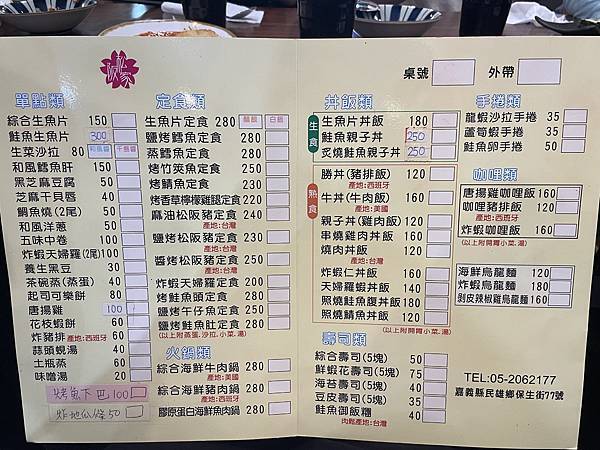 桌號 外帶
單點類
綜合生魚片 150
鮭魚生魚片 300
生菜沙拉 80 和風醬 千島醬
和風鱈魚肝 150
黑芝麻豆腐 50
芝麻干貝唇 40
鯛魚燒(2尾) 50
和風洋蔥 50
五味中卷 100
炸蝦天婦羅(2尾)100
養生黑豆 30
茶碗蒸(蒸蛋) 40
起司可樂餅 80
唐揚雞 100
花枝蝦餅 60
炸豬排 產地:西班牙 60
蒜頭蜆湯 40
土瓶蒸 60
味噌湯 20
烤魚下巴100
炸地瓜條50
定食類
生魚片定食 280 醋飯 白飯
鹽烤鱈魚定食 280
蒸鱈魚定食 280
烤竹筴魚定食 240
烤鯖魚定食 240
烤香草檸檬雞腿定食220
麻油松阪豬定食 240
產地:台灣
鹽烤松阪豬定食 230
產地:台灣
醬烤松阪豬定食 230
產地:台灣
炸蝦天婦羅定食 280
烤鮭魚頭定食 280
鹽烤午仔魚定食 280
鹽烤鮭魚肚定食 280
(以上附蒸蛋.沙拉.小菜.湯)
火鍋類
綜合海鮮牛肉鍋 280
產地:美國
綜合海鮮豬肉鍋 280
產地:西班牙
膠原蛋白海鮮魚肉鍋 280
丼飯類
生食
生魚片丼飯 180
鮭魚親子丼 250
炙燒鮭魚親子丼 250
熟食
勝丼(豬排飯) 120
產地:西班牙
牛丼(牛肉飯) 160
產地:美國
親子丼(雞肉飯)120
串燒雞肉丼飯 140
燒肉丼飯 120
產地:台灣
炸蝦仁丼飯 160
天婦羅蝦丼飯 140
照燒鮭魚腹丼飯 180
照燒鯖魚丼飯 120
(以上附開胃小菜.湯)
壽司類
綜合壽司(5塊) 50
鮮蝦花壽司(5塊) 75
海苔壽司(5塊) 40
豆皮壽司(5塊) 35
鮭魚御飯糰 40
肉鬆產地:台灣
手捲類
龍蝦沙拉手捲 35
蘆筍蝦手捲 35
鮭魚卵手捲 50
咖哩類
唐揚雞咖哩飯160
咖哩豬排飯 160
產地:西班牙
炸蝦咖哩飯 160
(以上附開胃小菜.湯)
海鮮烏龍麵 120
炸蝦烏龍麵 180
剝皮辣椒雞烏龍麵160
TEL:05-2062177
嘉義縣民雄鄉保生街77號